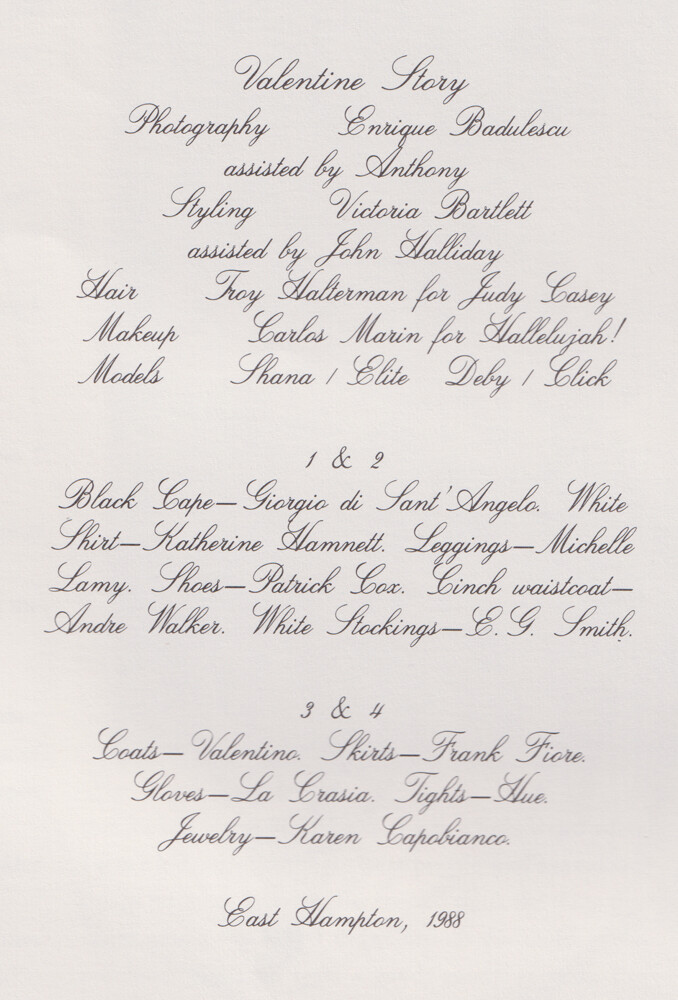 Valentine Story
Photography Enrique Badulescu
assisted by Anthony
Styling Victoria Bartlett
assisted by John Halliday
Hair Troy Halterman for Judy Casey
Makeup Carlos Marin for Hallelujah!
Models Shana / Elite Deby / Click
1 & 2
Black Cape—Giorgio di Sant' Angelo. White
Shirt—Katherine Hamnett. Leggings—Michelle
Lamy. Shoes—Patrick Cox. Cinch waistcoat—
Andre Walker. White Stockings—E. G. Smith.
3 & 4
Coats—Valentino. Skirts—Frank Fiore.
Gloves—La Crasia. Tights—Hue.
Jewelry—Karen Capobianco.
East Hampton, 1988